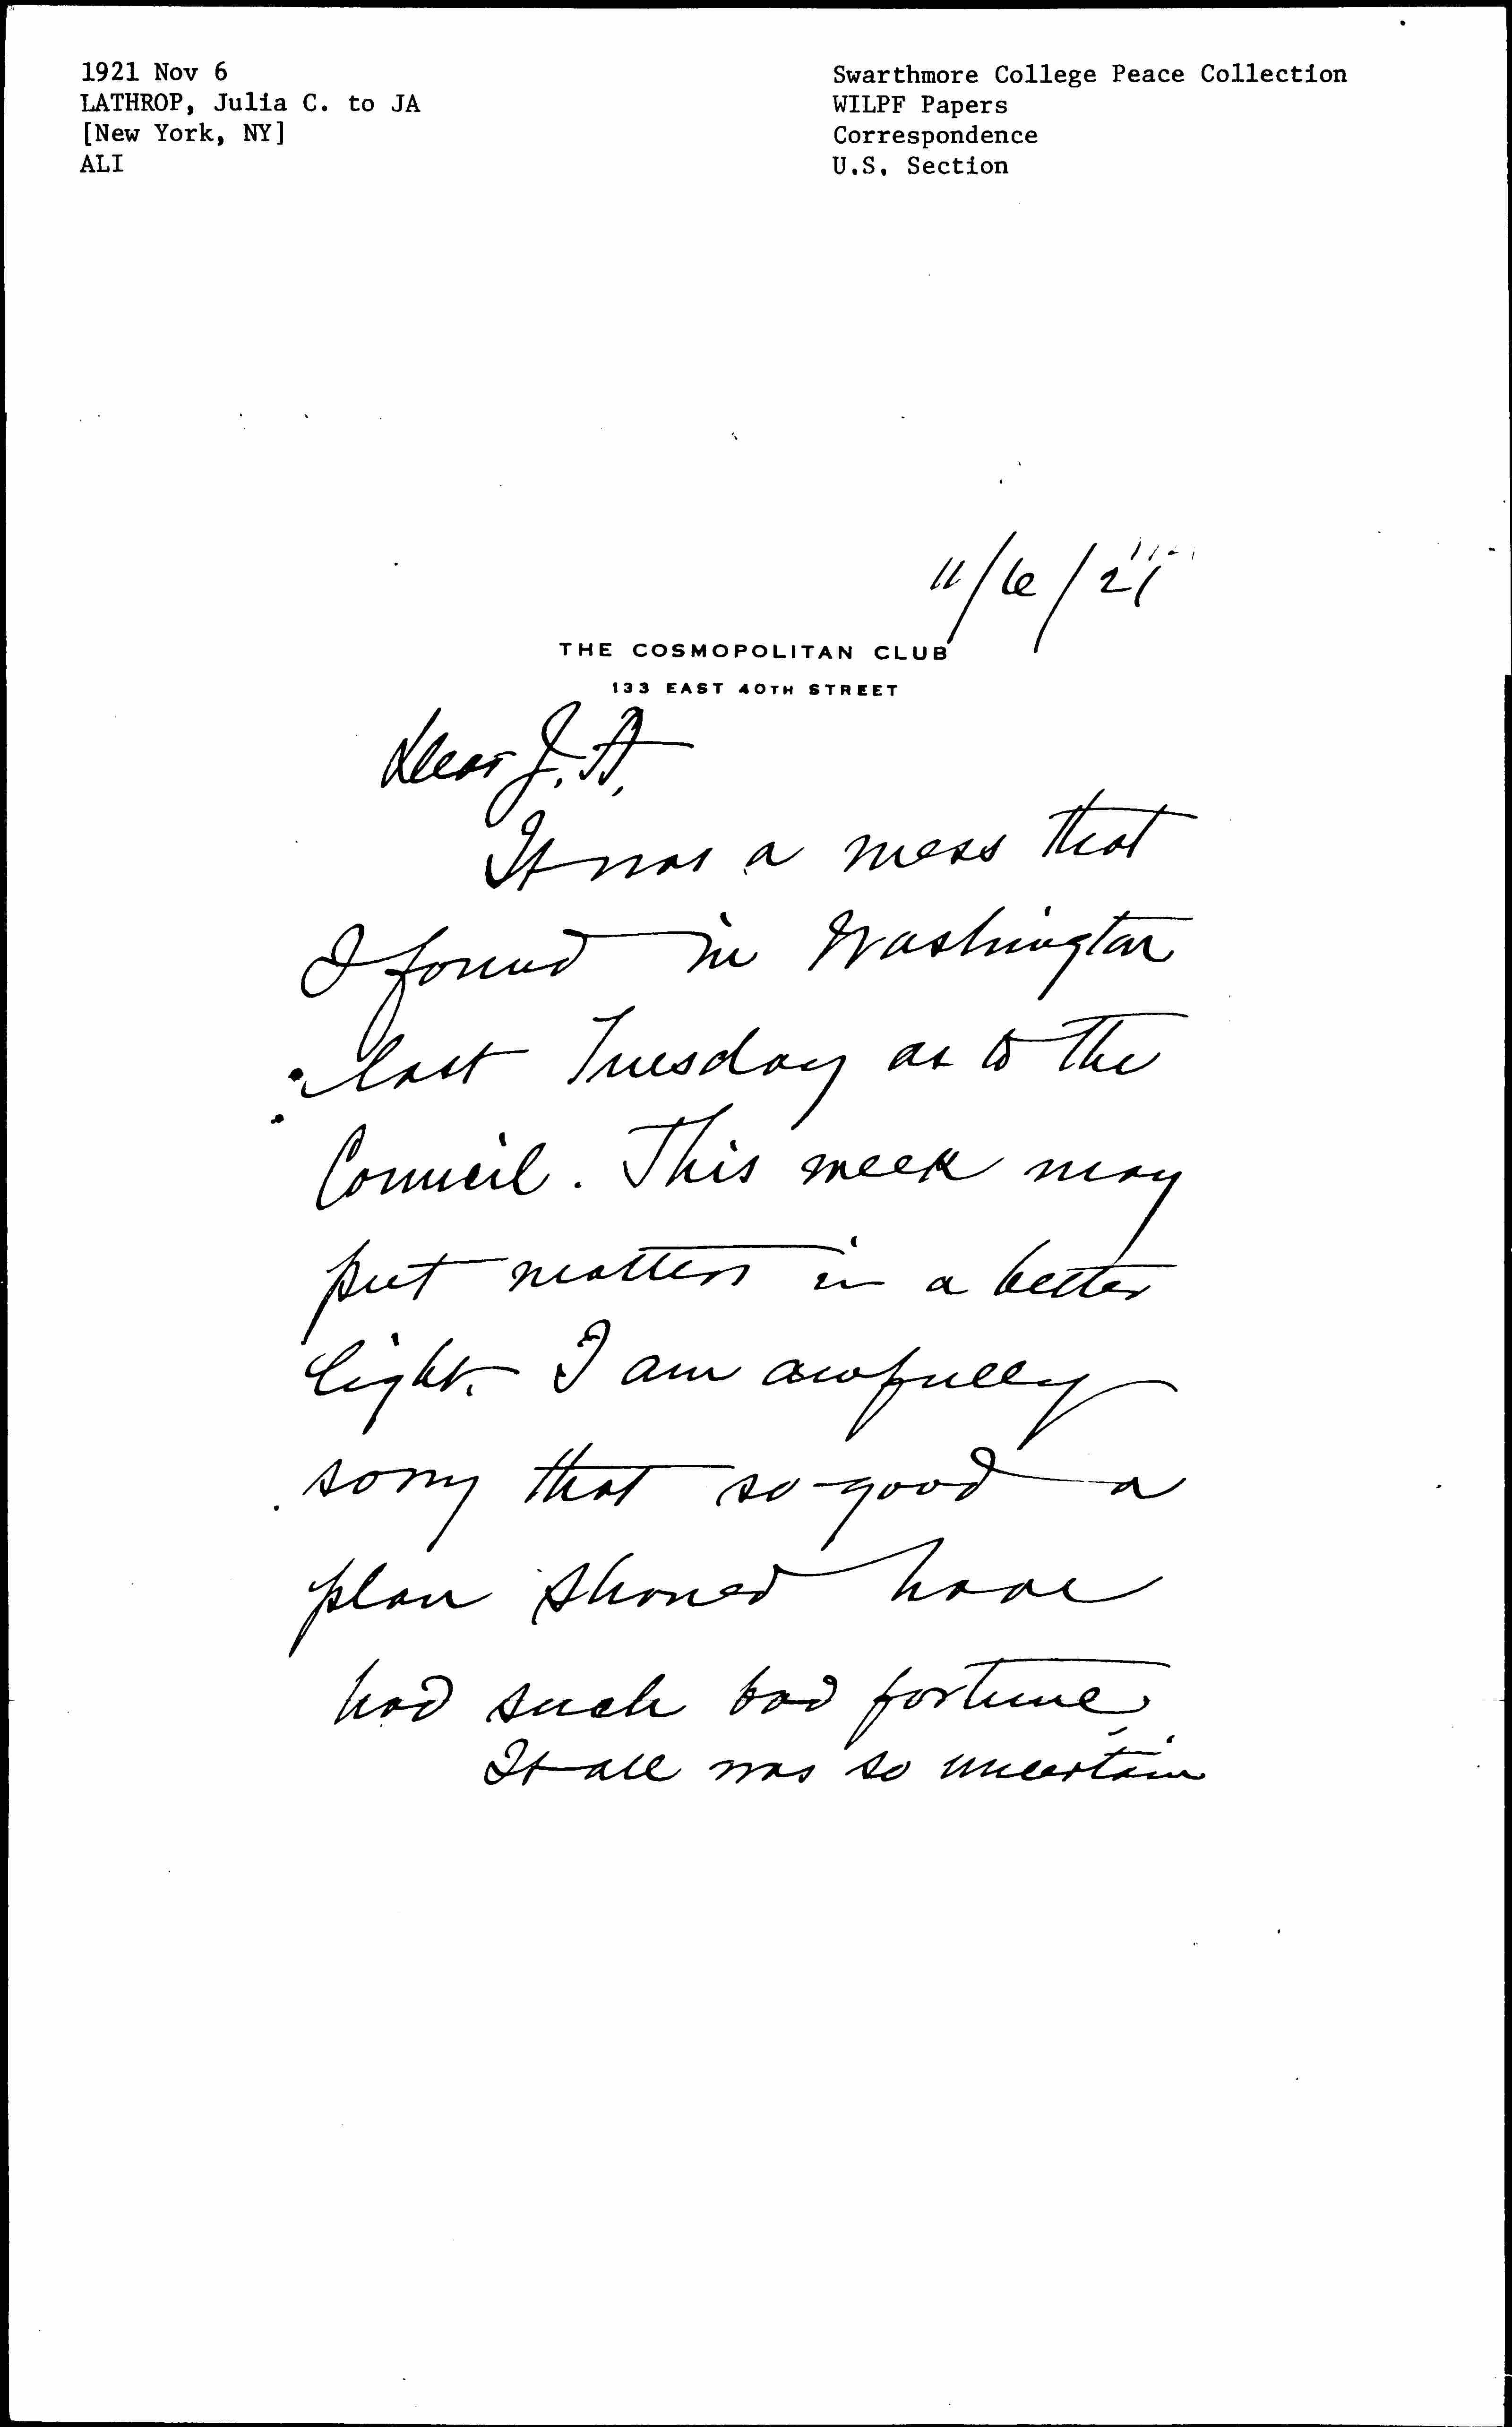 1921 Nov 6
LATHROP, Julia C. to JA
[New York, NY]
ALI
Swarthmore College Peace Collection
WILPF Papers
Correspondence
U.S. Section
11/6/21
THE COSMOPOLITAN CLUB
133 EAST 40TH STREET
Dear J.A.
It was a mess that
I found in Washington
last Tuesday as to the
Council. This week may
put matters in a better
light. I am awfully
sorry that so good a
plan should have
had such bad fortune.
It all was so uncertain